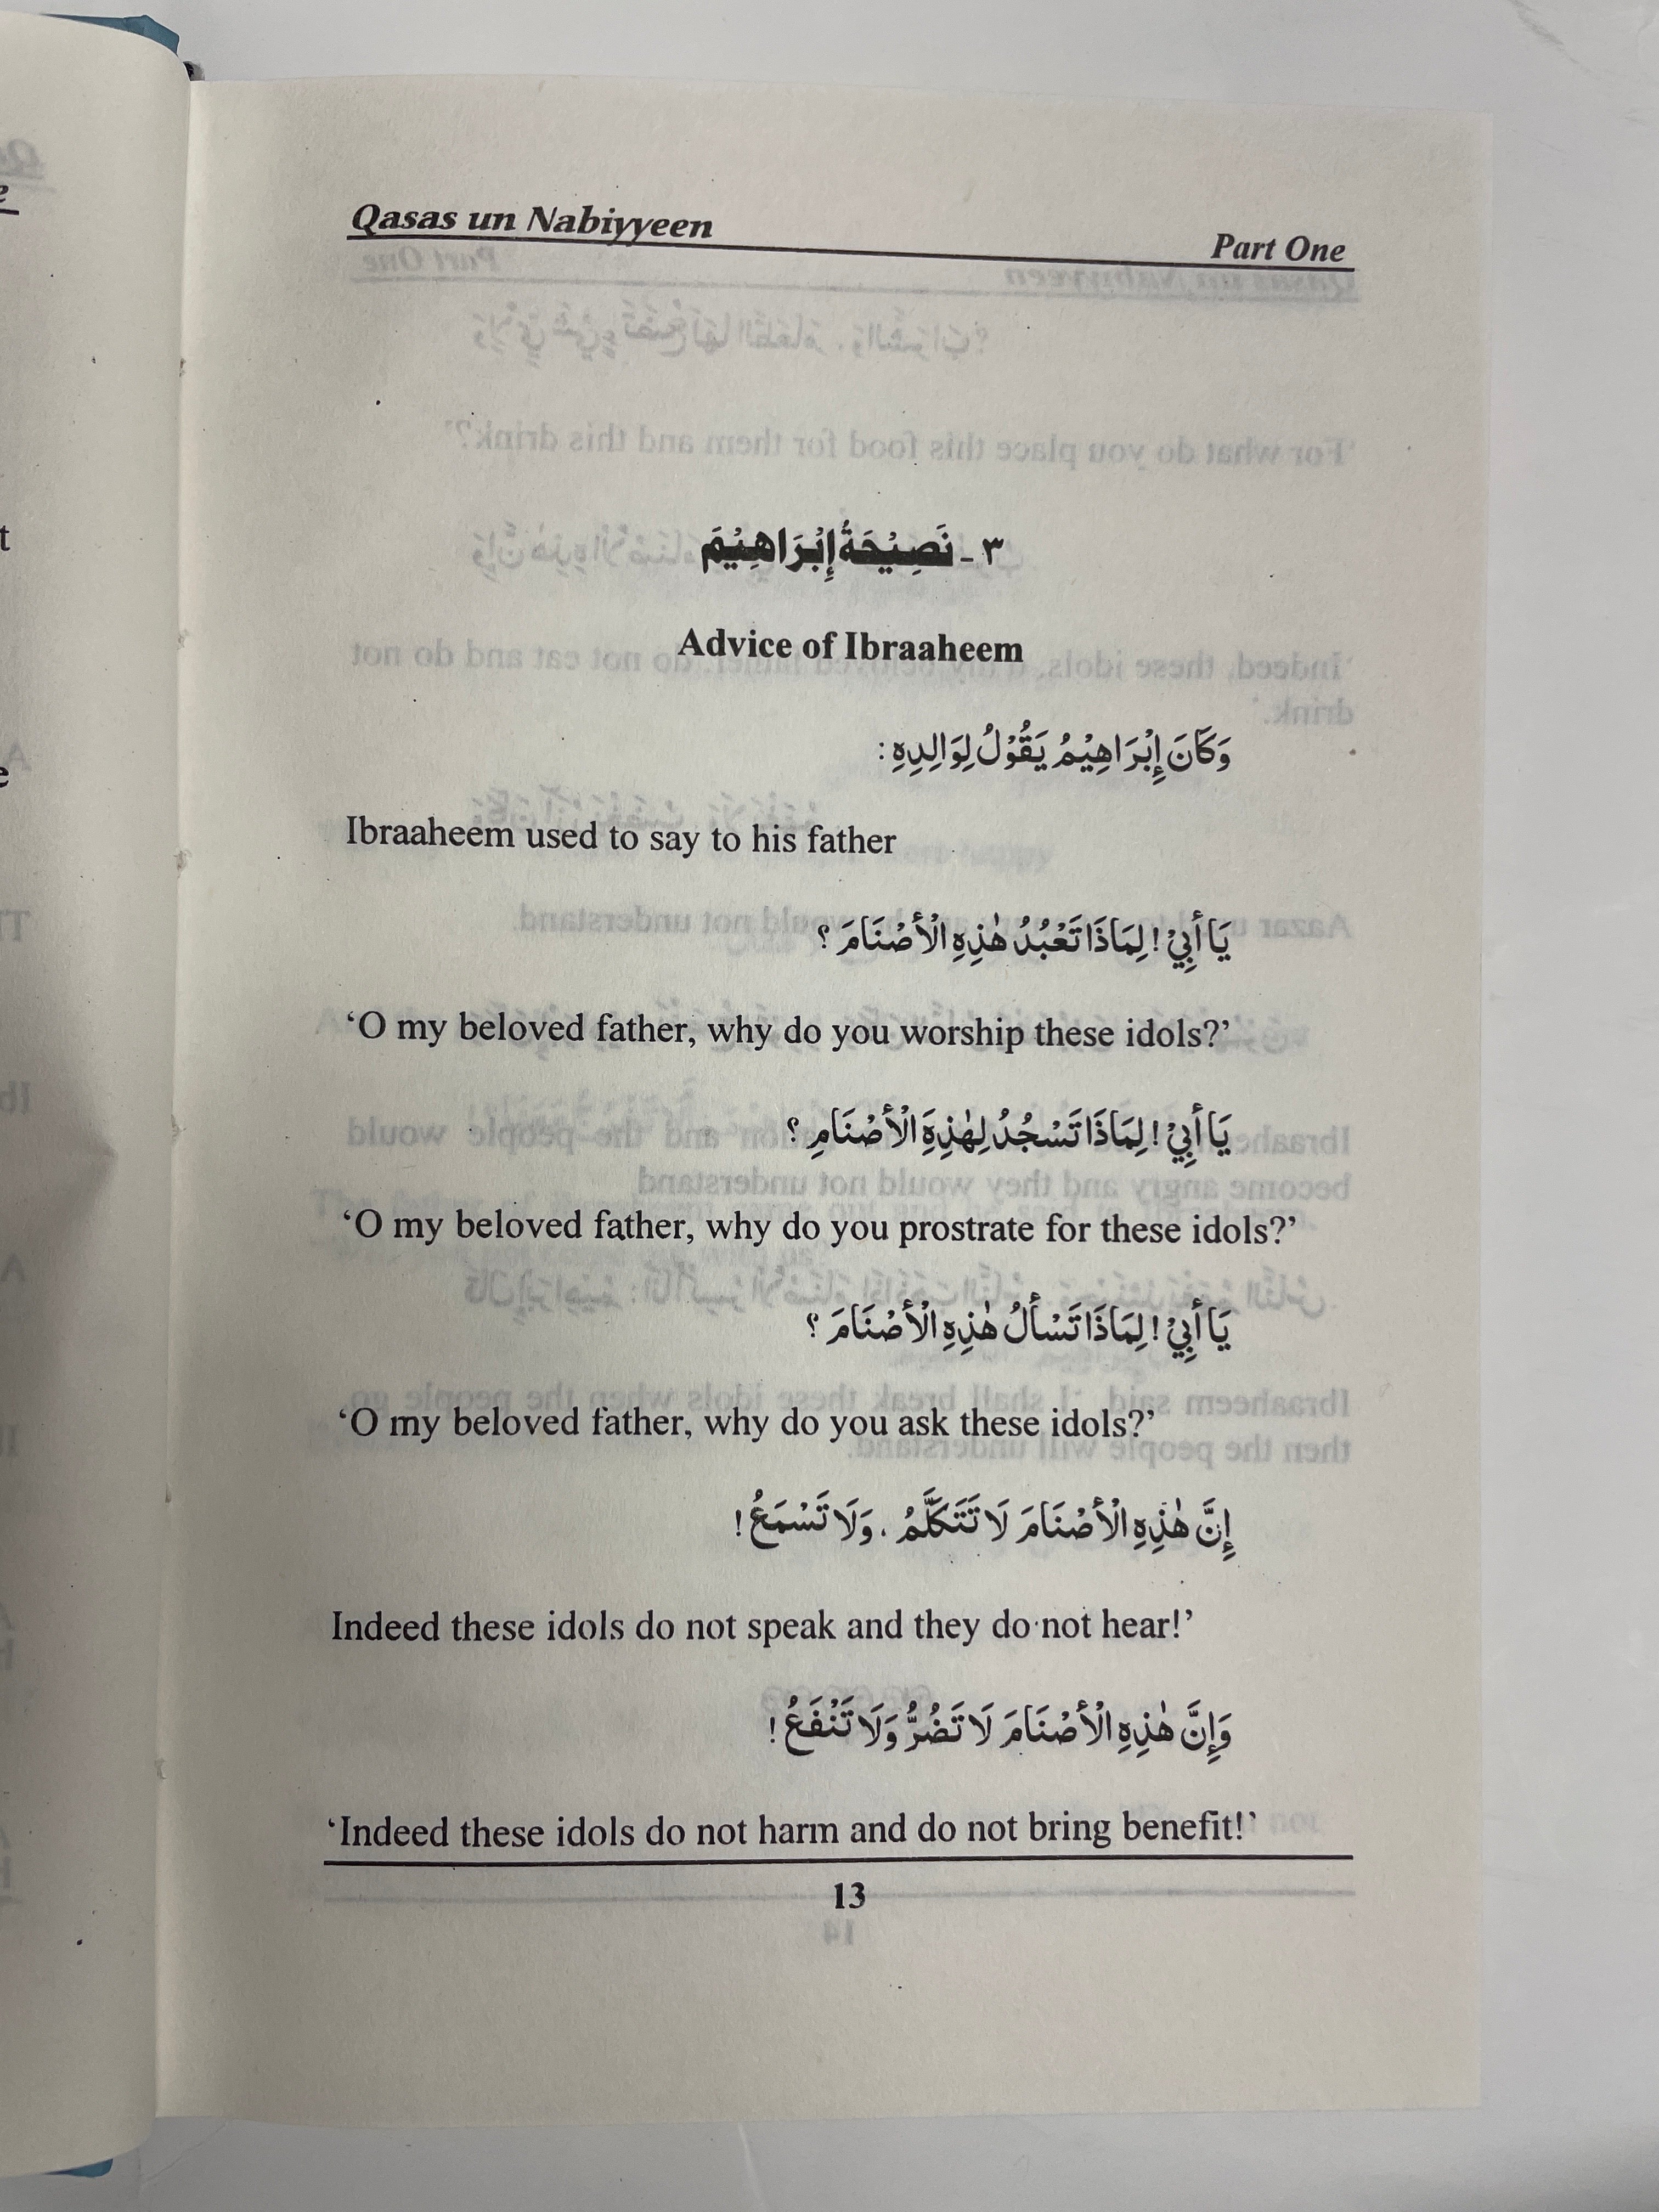 Qasas un Nabiyyeen
Part One
٣ - نَصِيْحَةُ إِبْرَاهِيْمَ
Advice of Ibraaheem
وَكَانَ إِبْرَاهِيْمُ يَقُوْلُ لِوَالِدِهِ :
Ibraaheem used to say to his father
يَا أَبِيْ ! لِمَاذَا تَعْبُدُ هٰذِهِ الْأَصْنَامَ ؟
‘O my beloved father, why do you worship these idols?’
يَا أَبِيْ ! لِمَاذَا تَسْجُدُ لِهٰذِهِ الْأَصْنَامِ ؟
‘O my beloved father, why do you prostrate for these idols?’
يَا أَبِيْ ! لِمَاذَا تَسْأَلُ هٰذِهِ الْأَصْنَامَ ؟
‘O my beloved father, why do you ask these idols?’
إِنَّ هٰذِهِ الْأَصْنَامَ لَا تَتَكَلَّمُ ، وَلَا تَسْمَعُ !
Indeed these idols do not speak and they do not hear!’
وَإِنَّ هٰذِهِ الْأَصْنَامَ لَا تَضُرُّ وَلَا تَنْفَعُ !
‘Indeed these idols do not harm and do not bring benefit!’
13